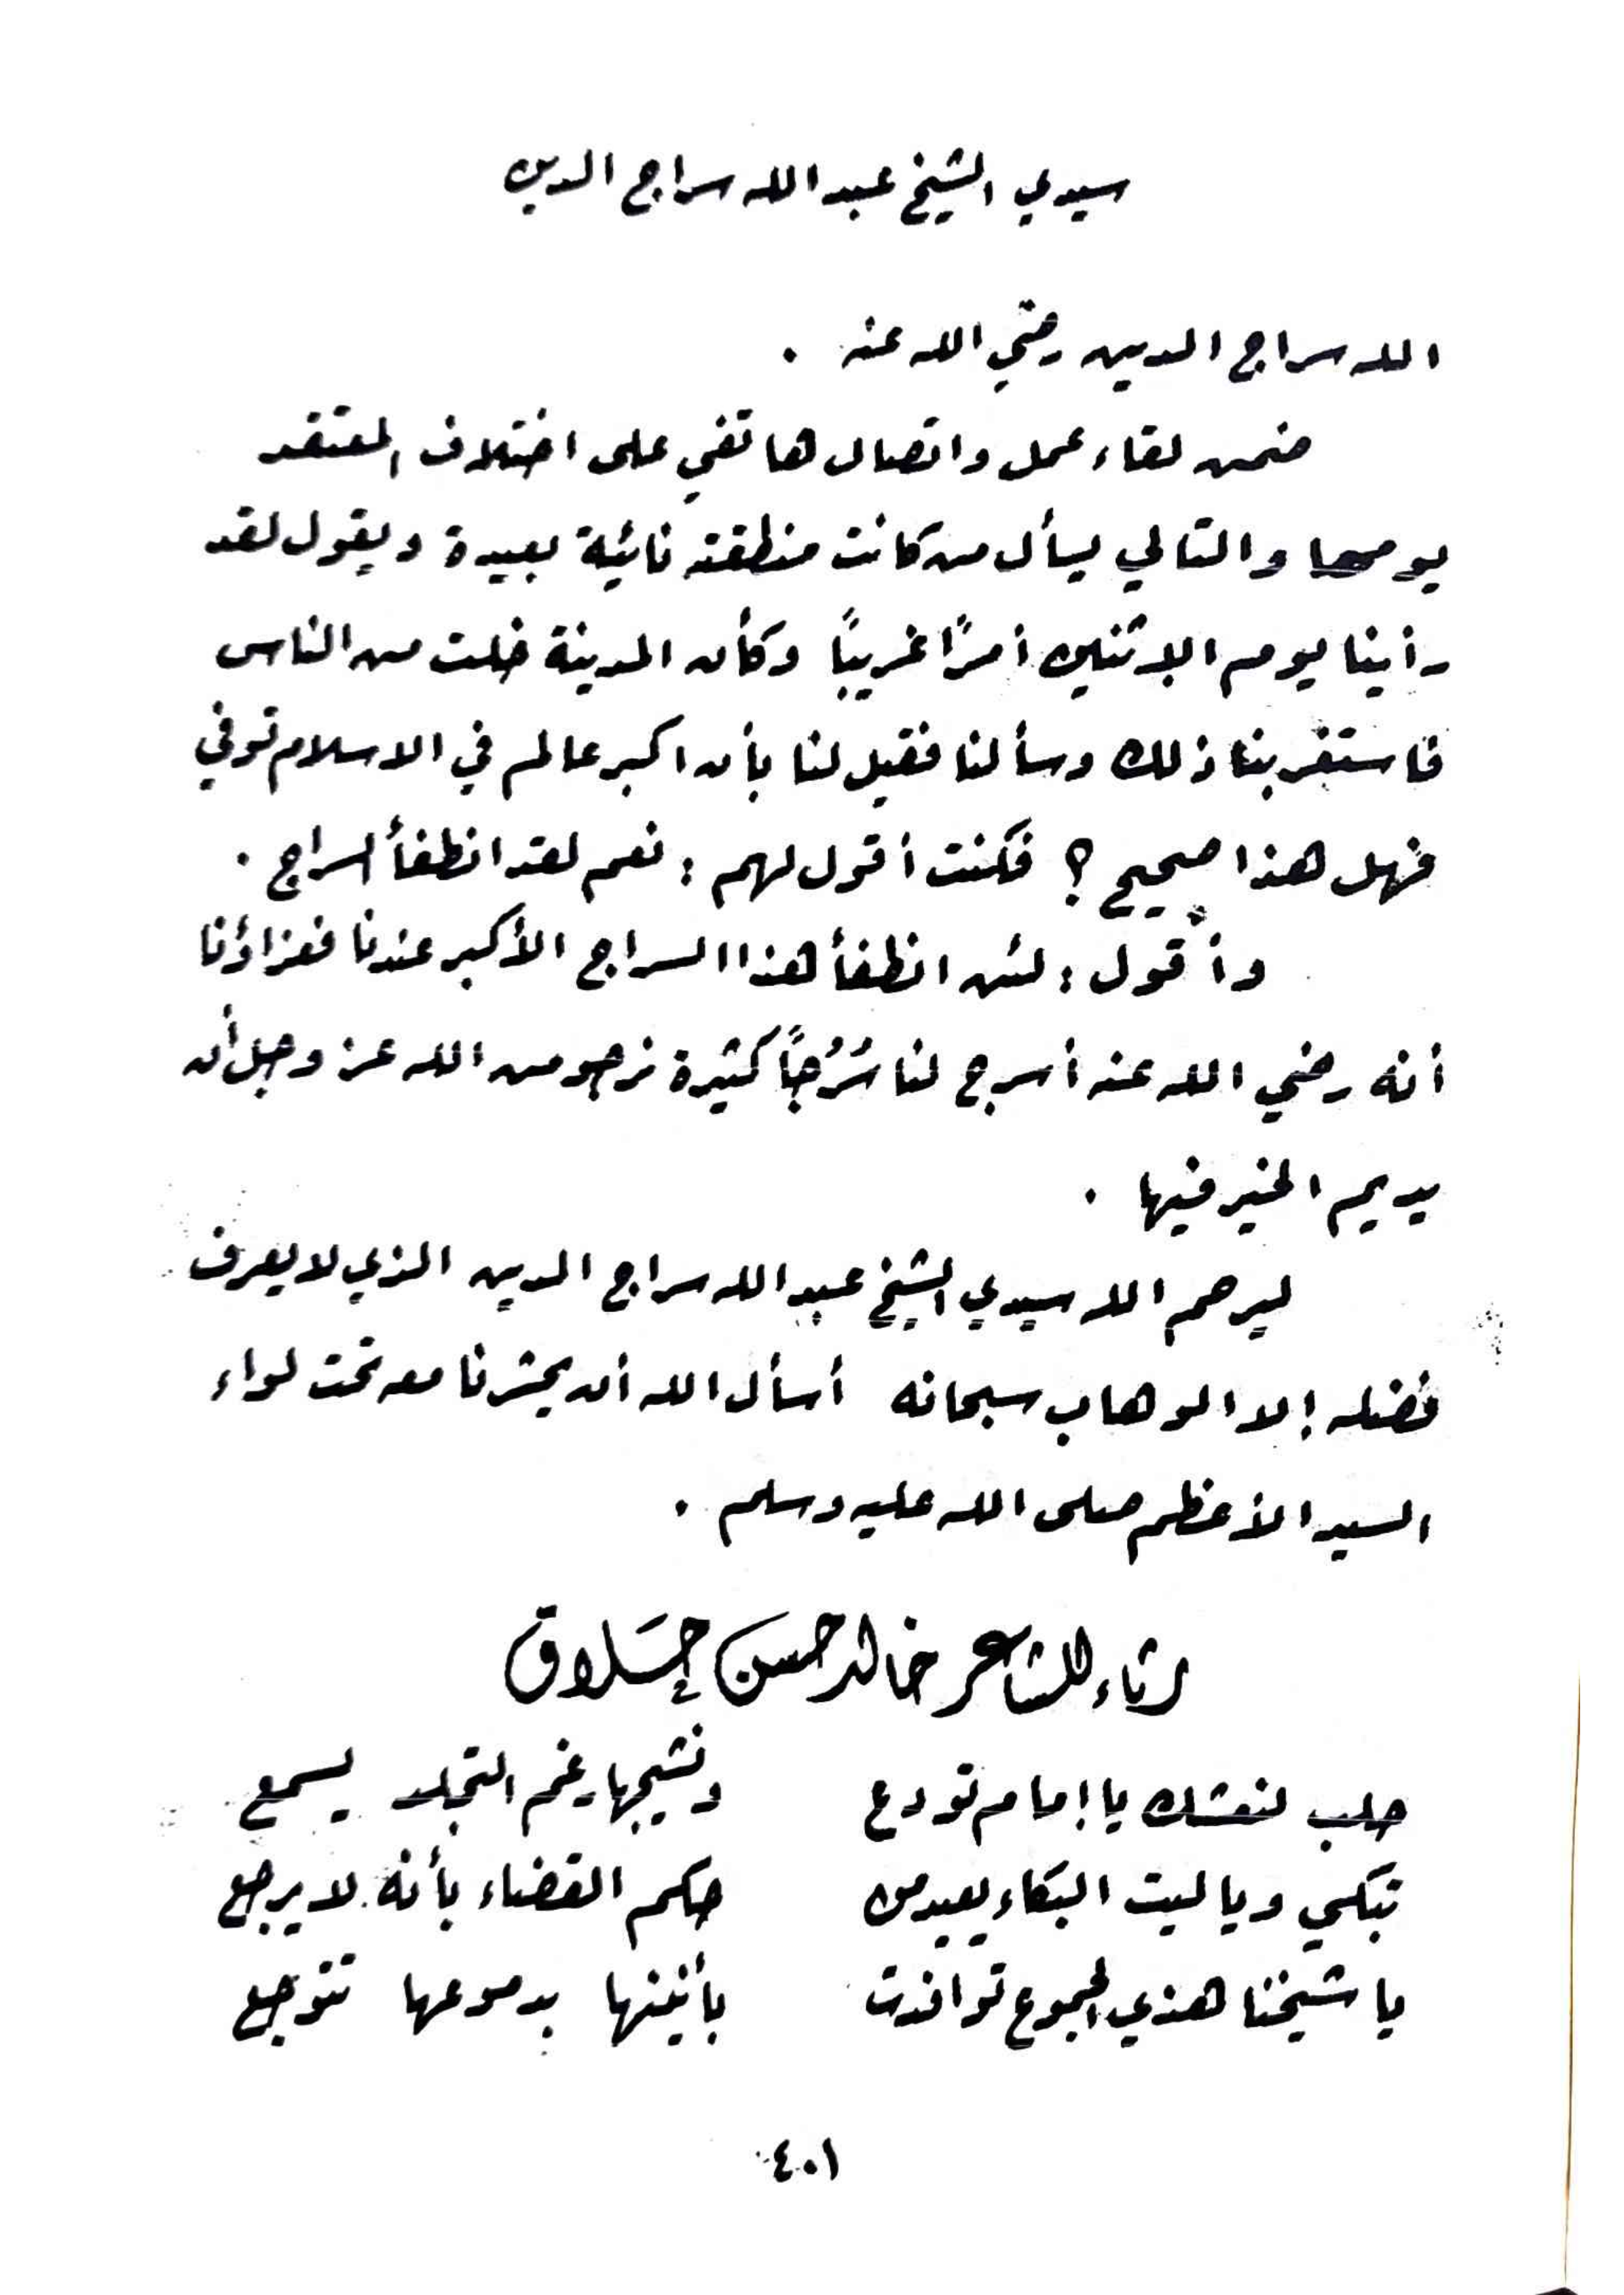 سيدي الشيخ عبد الله سراج الدين
الله سراج الدين رضي الله عنه .
ضمن لقاء عمل واتصال هاتفي على اختلاف المعتقد
يومها والتالي يسأل من كانت منطقته نائية بعيدة ويقول لقد
رأينا يوم الاثنين أمرًا غريبًا وكأن المدينة خلت من الناس
فاستغربنا ذلك وسألنا فقيل لنا بأن اكبر عالم في الاسلام توفي
فهل هذا صحيح ؟ فكنت أقول لهم : نعم لقد انطفأ السراج .
وأقول : لئن انطفأ هذا السراج الأكبر عندنا فعزاؤنا
أنه رضي الله عنه أسرج لنا سُرُجًا كثيرة نرجو من الله عز وجل أن
يديم الخير فيها .
ليرحم الله سيدي الشيخ عبد الله سراج الدين الذي لا يعرف
فضله إلا الوهاب سبحانه أسأل الله أن يحشرنا معه تحت لواء
السيد الأعظم صلى الله عليه وسلم .
رثاء للشاعر خالد حسن إحسَلاق
حلب لنعشك يا إمام تودع ونشيجها رغم التجلد يسمع
تبكي ويا ليت البكاء يعيد من حكم القضاء بأنه لا يرجع
يا شيخنا هذي الجموع توافدت بأنينها بدموعها تتوجع
٤٠١